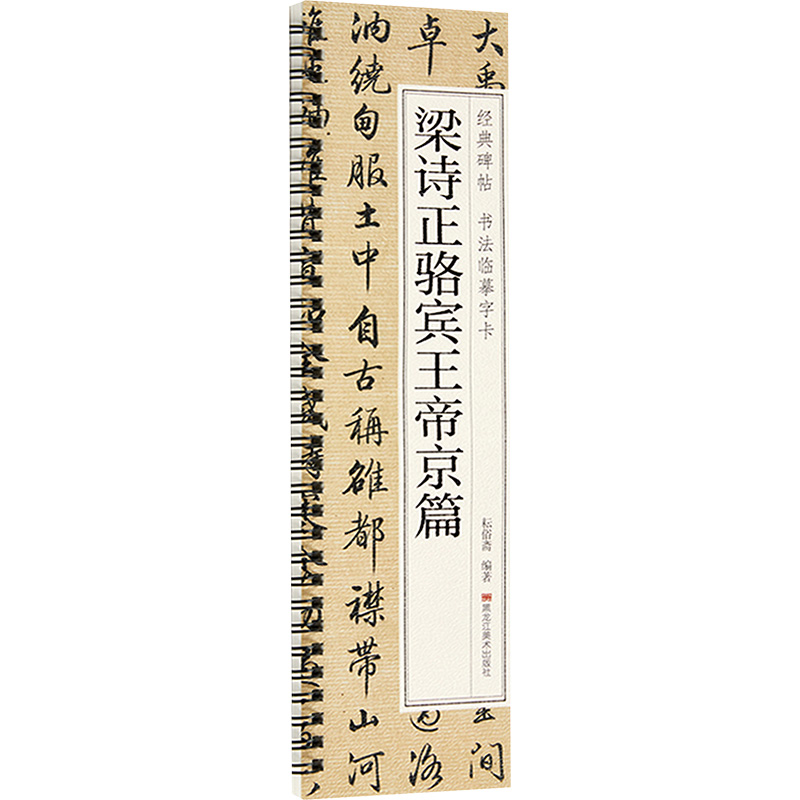 经典碑帖 书法临摹字卡
梁诗正骆宾王帝京篇
耘俗斋 编著
黑龙江美术出版社
大禹
間
卓
洛
汭繞甸服土中自古稱雒都襟帶山河